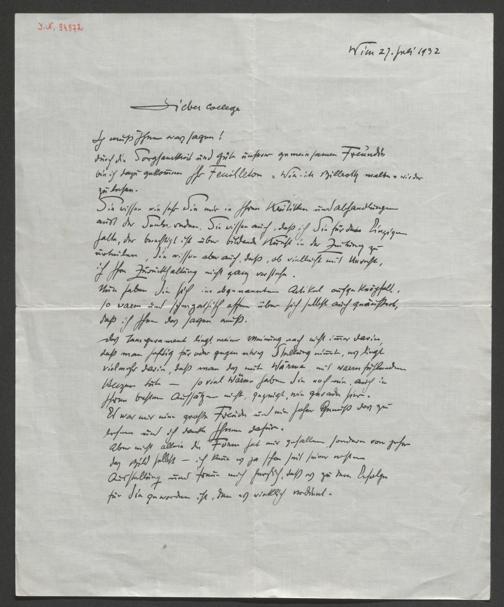 J.N. 94972
Wien 27. Juli 1932
Lieber College
Ich muß Ihnen was sagen!
durch die Sorgsamkeit und Güte unserer gemeinsamen Freundes
bin ich dazu gekommen Ihr Feuilleton „Wie ich Billroth malte" wieder
zu lesen.
Sie wissen wie sehr Sie mir in Ihren Kritiken und Abhandlungen
aus der Seele reden. Sie wissen auch, daß ich Sie für den Einzigen
halte, der berechtigt ist über bildende Kunst in der Zeitung zu
urteilen, Sie wissen aber auch, daß, ob vielleicht mit Unrecht,
ich Ihre Zurückhaltung nicht ganz verstehe.
Nun haben Sie sich in obgenanntem Artikel aufgeknöpfelt,
so warm und sympathisch offen über sich selbst auch geäußert,
daß ich Ihnen das sagen muß.
Das Temperament liegt meiner Meinung nach nicht immer darin,
daß man heftig für oder gegen etwas Stellung nimmt, es liegt
vielmehr darin, daß man das mit Wärme, mit warm fühlendem
Herzen tut — so viel Wärme haben Sie noch nie, auch in
Ihren besten Aufsätzen nicht, gezeigt, wie gerade hier.
Es war mir eine große Freude und ein hoher Genuß das zu
lesen und ich danke Ihnen dafür.
Aber nicht allein die Form hat mir gefallen sondern vor
das Bild selbst — ich kenne es ja schon seit seiner ersten
Ausstellung und freue mich herzlich, daß es zu dem Erfolge
für Sie geworden ist, den es wirklich verdient.